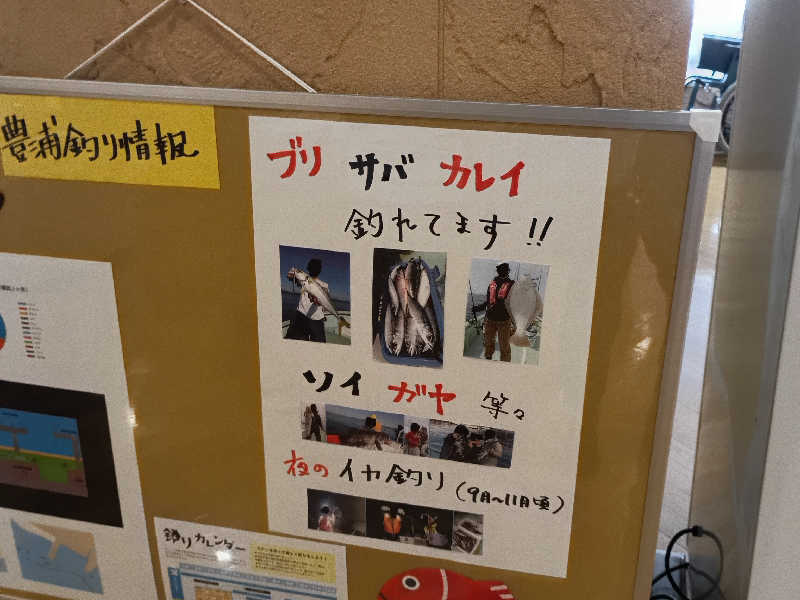 豊浦釣り情報
ブリ サバ カレイ
釣れてます!!
ソイ ガヤ 等々
夜の イカ釣り (9月〜11月頃)
釣りカレンダー